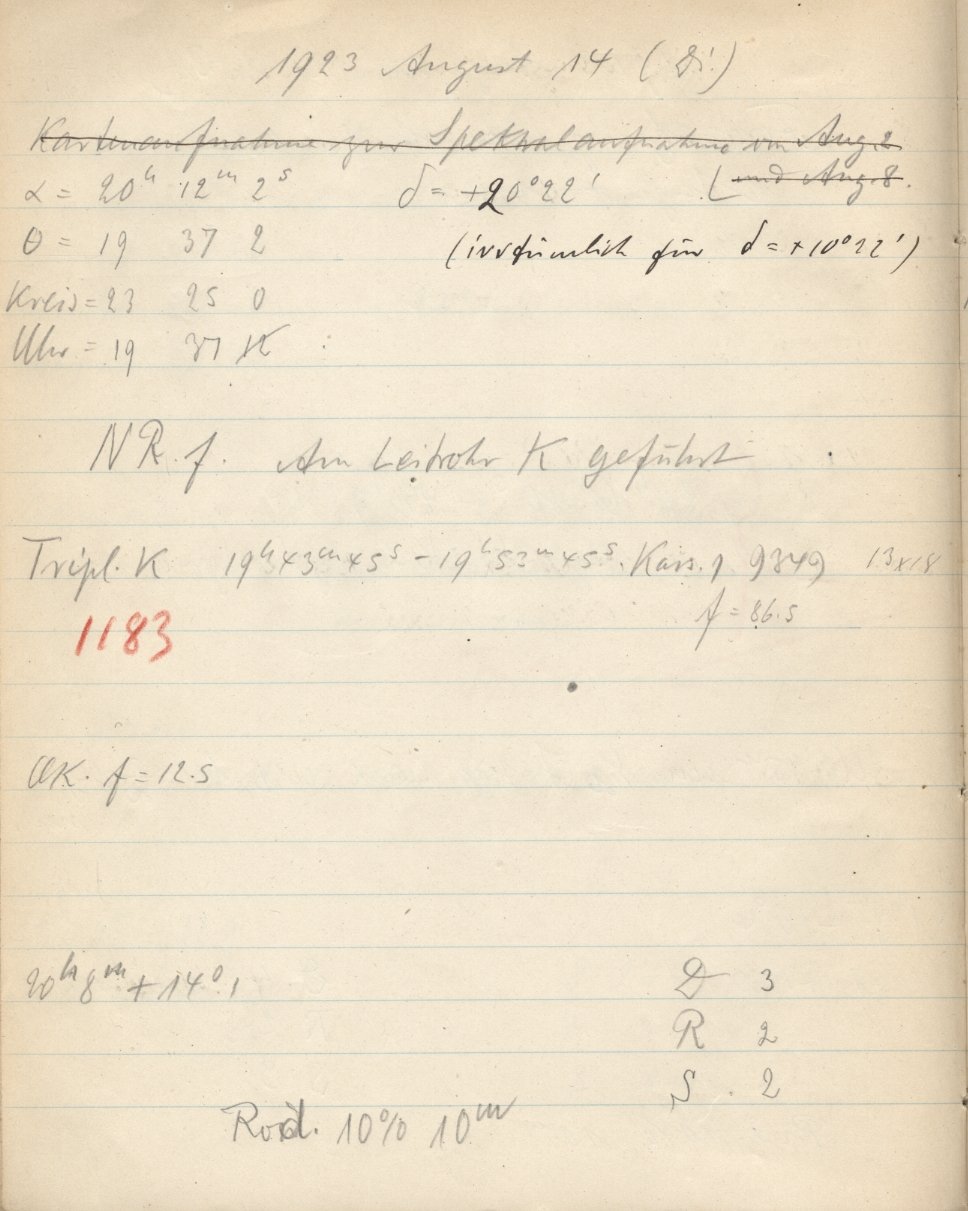 1923 August 14 (Di.)
Kartenaufnahme zur Spektralaufnahme von Aug. 2
[und Aug. 8.
α = 20ʰ 12ᵐ 2ˢ δ = +20°22'
θ = 19 37 2 (irrtümlich für δ = +10°22')
Kreis = 23 25 0
Uhr = 19 37
NR. f. Am Leitrohr K geführt
Tripl. K 19ʰ43ᵐ45ˢ – 19ʰ53ᵐ45ˢ. Kass. 1 9349 13x18
f = 86.5
1183
OK. f = 12.5
20ʰ 8ᵐ + 14°.1
D 3
R 2
S. 2
Rod. 10% 10ᵐ